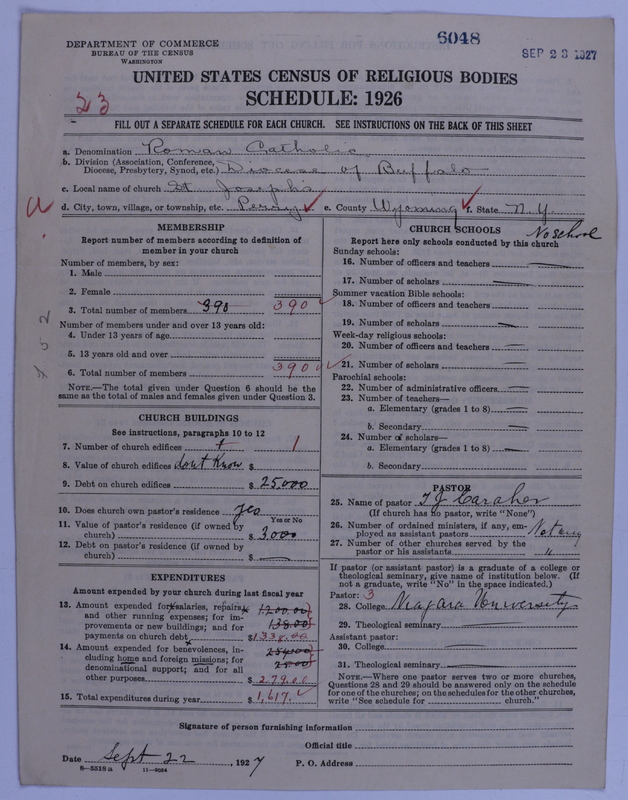 6048
SEP 23 1927
DEPARTMENT OF COMMERCE
BUREAU OF THE CENSUS
WASHINGTON
UNITED STATES CENSUS OF RELIGIOUS BODIES
SCHEDULE: 1926
23
FILL OUT A SEPARATE SCHEDULE FOR EACH CHURCH. SEE INSTRUCTIONS ON THE BACK OF THIS SHEET
a. Denomination Roman Catholic
b. Division (Association, Conference, Diocese, Presbytery, Synod, etc.) Diocese of Buffalo
c. Local name of church St Josephs
d. City, town, village, or township, etc. Perry ✓ e. County Wyoming ✓ f. State N.Y.
MEMBERSHIP
Report number of members according to definition of
member in your church
Number of members, by sex:
1. Male
2. Female
3. Total number of members 390 390 ✓
Number of members under and over 13 years old:
4. Under 13 years of age
5. 13 years old and over
6. Total number of members 390 ✓
NOTE.—The total given under Question 6 should be the
same as the total of males and females given under Question 3.
CHURCH BUILDINGS
See instructions, paragraphs 10 to 12
7. Number of church edifices 1 1
8. Value of church edifices dont Know $
9. Debt on church edifices $ 25,000
10. Does church own pastor's residence yes
Yes or No
11. Value of pastor's residence (if owned by
church) $ 3,000
12. Debt on pastor's residence (if owned by
church) $ —
EXPENDITURES
Amount expended by your church during last fiscal year
13. Amount expended for salaries, repairs, 1200.00
and other running expenses; for im-
provements or new buildings; and for 138.00
payments on church debt $ 1338.00
14. Amount expended for benevolences, in- 254.00
cluding home and foreign missions; for
denominational support; and for all 25.00
other purposes $ 279.00
15. Total expenditures during year $ 1,617. ✓
CHURCH SCHOOLS
No school
Report here only schools conducted by this church
Sunday schools:
16. Number of officers and teachers —
17. Number of scholars —
Summer vacation Bible schools:
18. Number of officers and teachers
19. Number of scholars —
Week-day religious schools:
20. Number of officers and teachers —
21. Number of scholars —
Parochial schools:
22. Number of administrative officers —
23. Number of teachers—
a. Elementary (grades 1 to 8) —
b. Secondary —
24. Number of scholars—
a. Elementary (grades 1 to 8) —
b. Secondary
PASTOR
25. Name of pastor T J Caraher
(If church has no pastor, write "None")
26. Number of ordained ministers, if any, em-
ployed as assistant pastors Not any
27. Number of other churches served by the
pastor or his assistants "
If pastor (or assistant pastor) is a graduate of a college or
theological seminary, give name of institution below. (If
not a graduate, write "No" in the space indicated.)
Pastor: 3
28. College Niagara University
29. Theological seminary —
Assistant pastor:
30. College —
31. Theological seminary —
NOTE.—Where one pastor serves two or more churches,
Questions 28 and 29 should be answered only on the schedule
for one of the churches; on the schedules for the other churches,
write "See schedule for church."
Signature of person furnishing information
Official title
Date Sept 22, 1927 P. O. Address
8—5518 a 11—9034